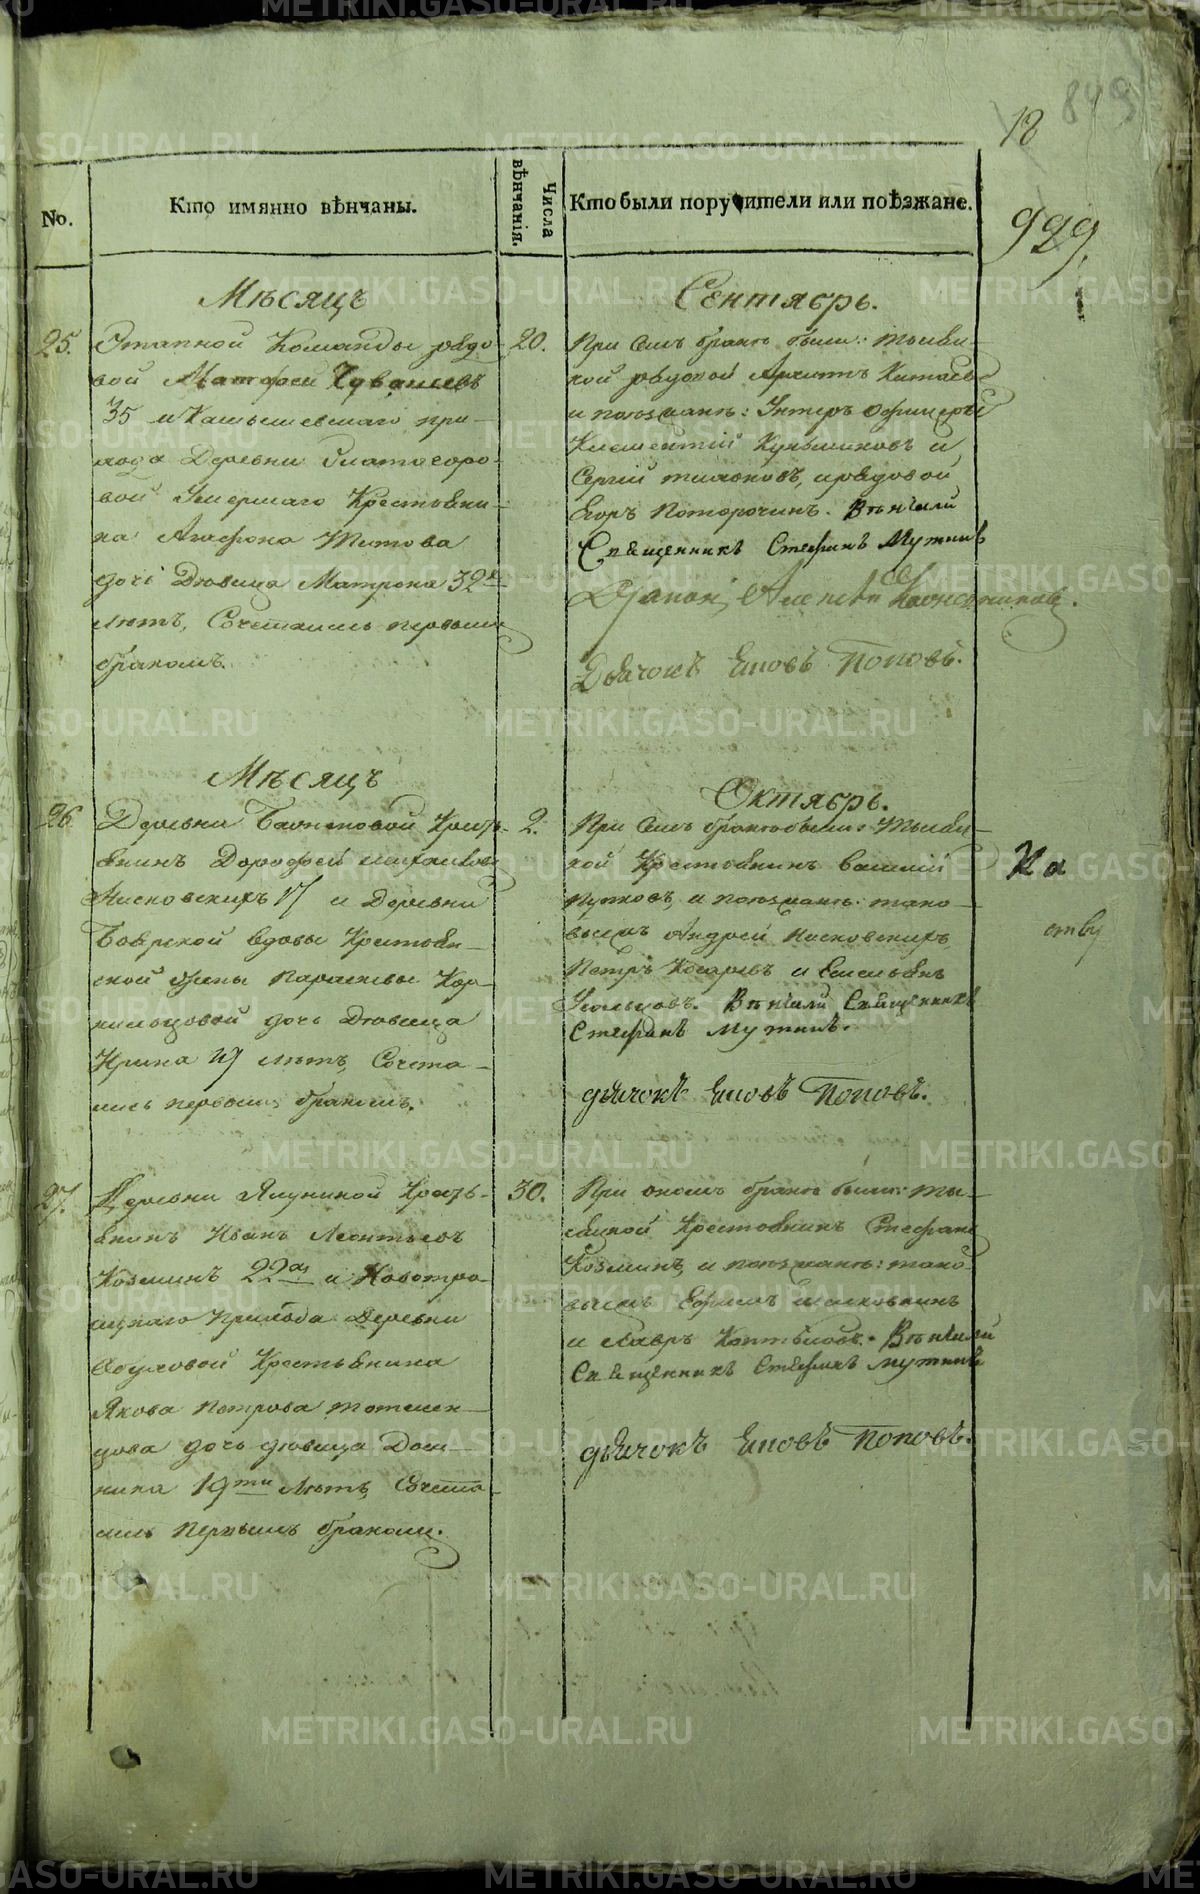 12
849
No.
Кто имянно вѣнчаны.
Числа вѣнчанія.
Кто были поручители или поѣзжане.
929.
Мѣсяцъ
Сентябрь.
25.
Этапной Команды рядо-
вой Матфей Чувашевъ
35 и Камышевскаго при-
хода Деревни
вой Умершаго Крестьяни-
на Агафона Титова
дочь Дѣвица Матрона 32х
лѣтъ, Сочетались первымъ
бракомъ.
20.
При семъ бракѣ были: тысяц-
кой рядовой Архипъ Китаевъ
и поѣзжанѣ: Унтеръ Офицеръ
Климентий Кунщиковъ и
Сергій, ирядовой
Егоръ Поторочинъ. Вѣнчали
Священникъ Стефанъ Мутинъ
Дьячокъ Іповъ Поповъ.
Мѣсяцъ
Октябрь.
26
Деревни Крестъ-
янинъ Дорофей Михайловъ
Пинсковскихъ 17 и Деревни
Боярской вдовы Крестьян-
ской жены Парасковьи Кор-
нильцовой дочь Дѣвица
Ирина 17 лѣтъ, Сочета-
лись первымъ бракомъ.
2.
При семъ бракѣ были: Тысяц-
кой Крестьянинъ Василій
и поѣзжанѣ: тако-
выежъ Андрей Пинсковскихъ,
Петръ Косаревъ и Емельянъ
Усольцовъ. Вѣнчали Священникъ
Стефанъ Мутинъ.
дьячокъ Іповъ Поповъ.
На
27.
Деревни Ялуниной Кресть-
янинъ Иванъ Леонтьевъ
Козминъ 22хъ и Новотро-
ицкаго Прихода Деревни
Крестьянина
Якова Петрова Тотмен-
цова дочь дѣвица Дом-
ника 19ти лѣтъ, Сочета-
лись первымъ бракомъ.
30.
При ономъ бракѣ были: ты-
сяцкой Крестьянинъ Стефанъ
Козминъ, и поѣзжанѣ: тако-
выежъ Ефимъ
и Лавръ Коптѣловъ. Вѣнчали
Священникъ Стефанъ Мутинъ
дьячокъ Іповъ Поповъ.
METRIKI.GASO-URAL.RU